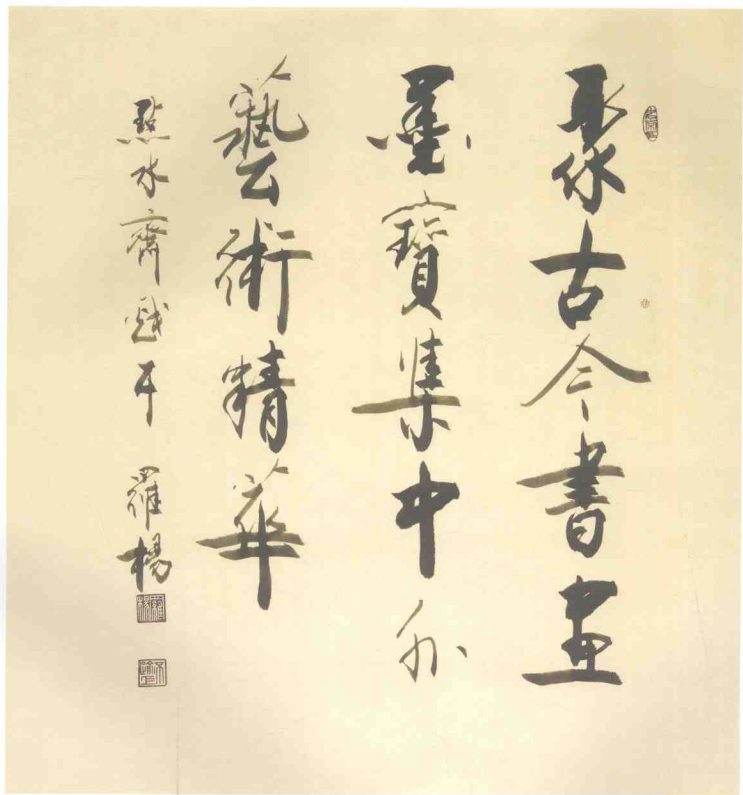 聚古今書畫
墨寶集中外
藝術精華
點水齋 羅楊